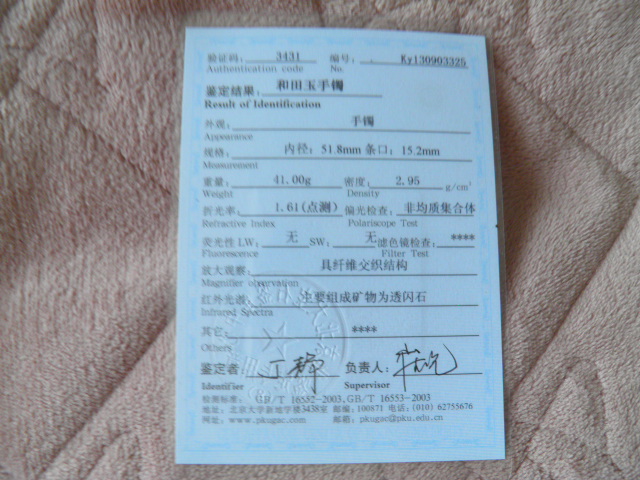 验证码: 3431 编号: Ky130903325
Authentication code No.
鉴定结果: 和田玉手镯
Result of Identification
外观: 手镯
Appearance
规格: 内径: 51.8mm 条口: 15.2mm
Measurement
重量: 41.00g 密度: 2.95 g/cm³
Weight Density
折光率: 1.61(点测) 偏光检查: 非均质集合体
Refractive Index Polariscope Test
荧光性 LW: 无 SW: 无 滤色镜检查: ****
Fluorescence Filter Test
放大观察: 具纤维交织结构
Magnifier observation
红外光谱: 主要组成矿物为透闪石
Infrared Spectra
其它: ****
Others
鉴定者: 负责人:
Identifier Supervisor
检测标准: GB/T 16552-2003,GB/T 16553-2003
地址: 北京大学新地学楼3438室 邮编:100871 电话:(010) 62755676
网址: www.pkugac.com 邮箱: pkugac@pku.edu.cn